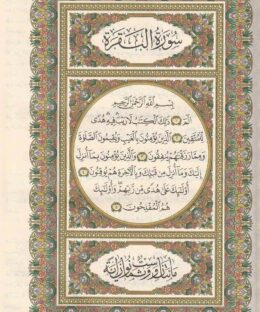 سورة البقرة
بسم الله الرحمن الرحيم
الم ۝ ذلك الكتب لا ريب فيه هدى
للمتقين ۝ الذين يؤمنون بالغيب ويقيمون الصلوة
ومما رزقنهم ينفقون ۝ والذين يؤمنون بما أنزل
إليك وما أنزل من قبلك وبالأخرة هم يوقنون ۝
أولئك على هدى من ربهم وأولئك
هم المفلحون ۝
مائتان وست وثمانون آية